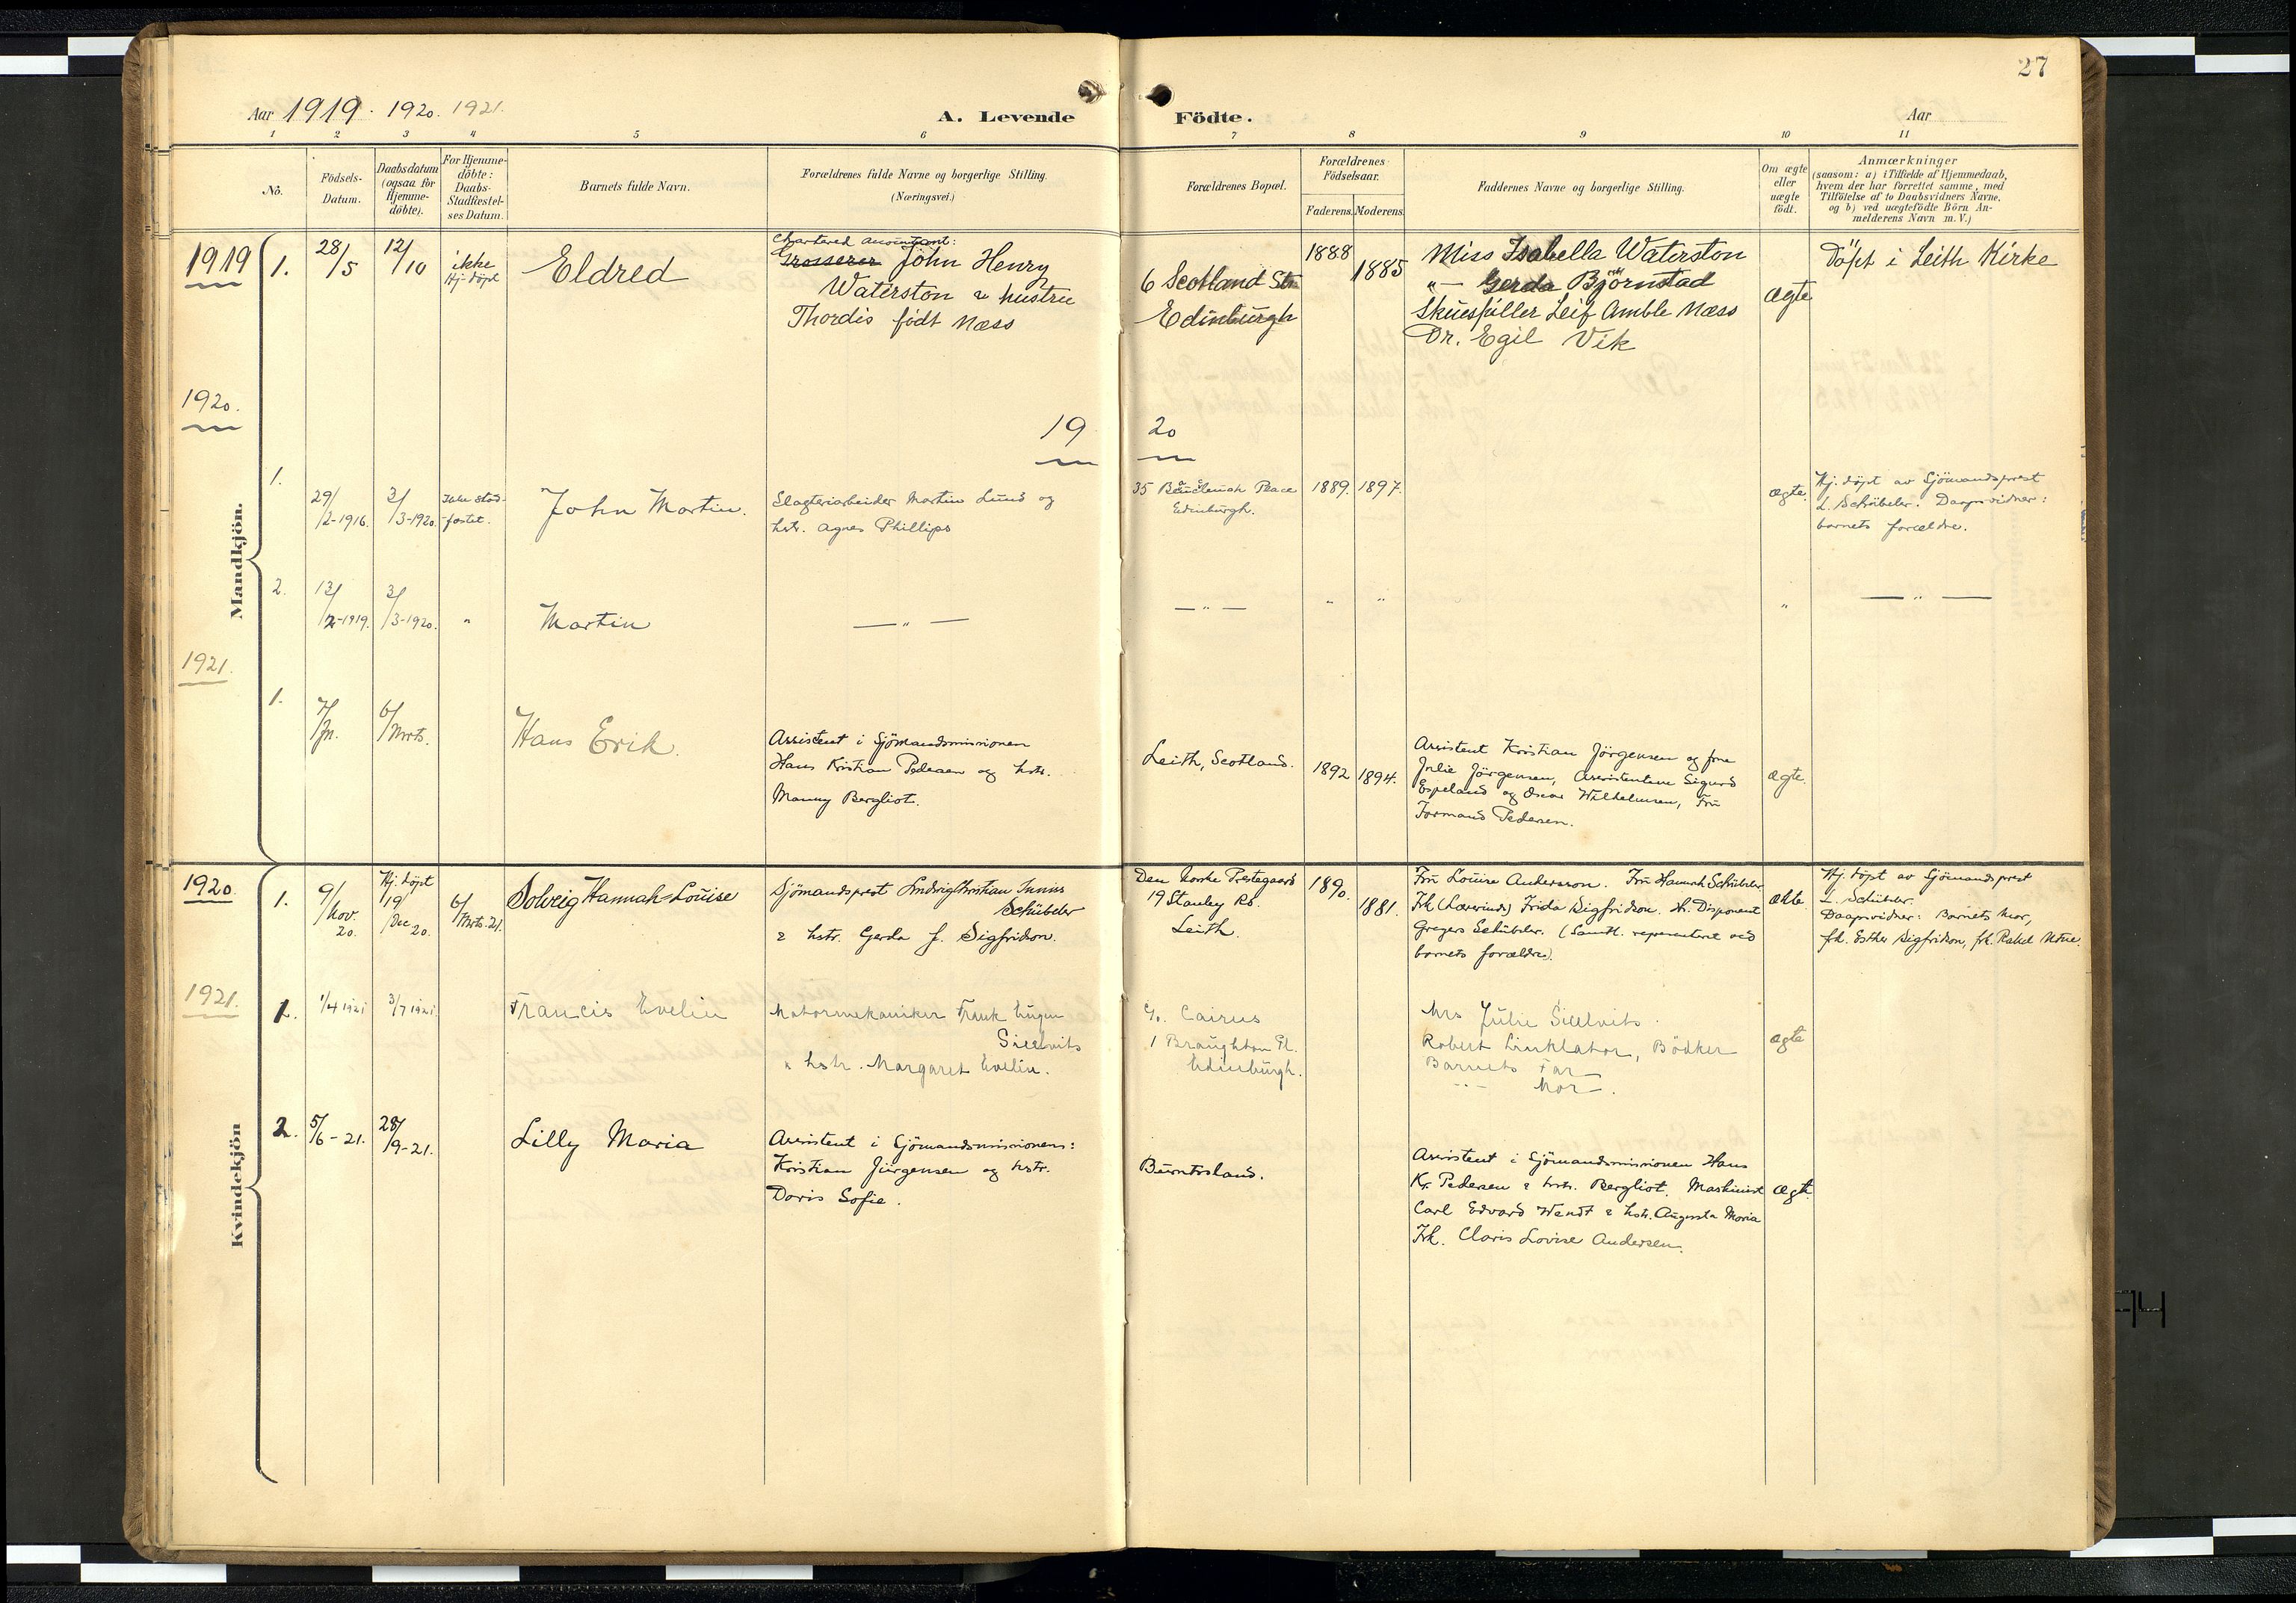 27
Aar 1919. 1920. 1921.
A. Levende Födte.
Aar
1 2 3 4 5 6 7 8 9 10 11
No.
Födsels-
Datum.
Daabsdatum
(ogsaa for
Hjemme-
döbte).
For Hjemme-
döbte:
Daabs-
Stadfæstel-
ses Datum.
Barnets fulde Navn.
Forældrenes fulde Navne og borgerlige Stilling.
(Næringsvei.)
Forældrenes Bopæl.
Forældrenes
Födselsaar.
Faderens. Moderens.
Faddernes Navne og borgerlige Stilling.
Om ægte
eller
uægte
födt.
Anmærkninger
(saasom: a) i Tilfælde af Hjemmedaab,
hvem der har forrettet samme, med
Tilföielse af to Daabsvidners Navne,
og b) ved uægtefödte Börn An-
melderens Navn m. V.)
Mandkjön.
1919
1.
28/5
12/10
ikke
Hj. döpt
Eldred
Chartered accountant:
Grosserer John Henry
Waterston & hustru
Thordis födt Næss
6 Scotland Str.
Edinburgh
1888
1885
Miss Isabella Waterston
"— Gerda Björnstad
Skuespiller Leif Amble Næss
Dr. Egil Vik
ægte
Döpt i Leith Kirke
1920.
19 20
1.
29/2-1916.
3/3-1920.
Ikke stad-
fæstet.
John Martin.
Slagteriarbeider Martin Lund og
hstr. Agnes Phillips
35 Buccleuch Place
Edinburgh.
1889. 1897.
ægte.
Hj. döpt av Sjömandsprest
L. Schübeler. Daapsvidner:
barnets forældre.
2.
13/2-1919.
3/3-1920.
"
Martin
— " —
— " —
" "
"
— " —
1921.
1.
7/Jn.
6/Mrts.
Hans Erik.
Assistent i Sjömandsmissionen
Hans Kristian Pedersen og hstr.
Manny Bergliot.
Leith, Scotland.
1892 1894.
Assistent Kristian Jörgensen og frue
Julie Jörgensen, Assistentene Sigurd
Espeland og Oscar Wilhelmsen, Fru
Formand Pedersen.
ægte.
Kvindekjön
1920.
1.
9/Nov. 20.
Hj. döpt
19/Dec 20.
6/Mrts. 21.
Solveig Hannah-Louise
Sjömandsprest Ludvig Kristian
Schübeler
& hstr. Gerda f. Sigfridson.
Den norske Prestegaard
19 Stanley Rd.
Leith.
1890.
1881.
Fru Louise Andersson. Fru Hannah Schübeler
Frk (Lærerinde) Frida Sigfridson. Hr. Disponent
Gregers Schübeler. (Samtl. representeret ved
barnets forældre).
ekte.
Hj. döpt av Sjömandsprest
L. Schübeler.
Daapsvidner: Barnets mor,
frk. Esther Sigfridson, frk. Rakel
1921.
1.
1/4 1921
3/7 1921.
Francis Evelin
Motormekaniker Frank Eugen
Sillvits
" hstr. Margaret Evelin.
c/o. Cairns
1 Broughton Pl.
Edinburgh.
Mrs Julie Sillvits.
Robert Linklator, Bödker
Barnets Far
-"- Mor.
ægte
2.
5/6-21.
28/9-21.
Lilly Maria
Assistent i Sjömandsmissionens:
Kristian Jürgensen og hstr.
Doris Sofie.
Burntisland.
Assistent i Sjömandsmissionen Hans
Kr. Pedersen & hstr. Bergliot. Maskinist
Carl Edvard Wendt & hstr. Augusta Maria
Frk. Claris Lovise Andersen.
ægte.